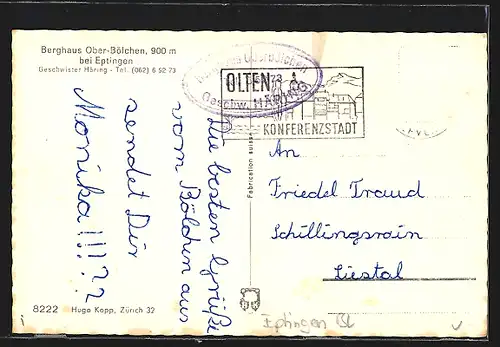 Berghaus Ober-Bölchen, 900 m
bei Eptingen
Geschwister Häring - Tel. (062) 6 52 73
OLTEN
KONFERENZSTADT
Geschw. HÄRING
Die besten Grüße
vom Bölchen aus
sendet Dir
Monika!!!??
An
Friedel Traud
Schillingsrain
Liestal
Fabrication suisse
8222 Hugo Kopp, Zürich 32
Eptingen BL